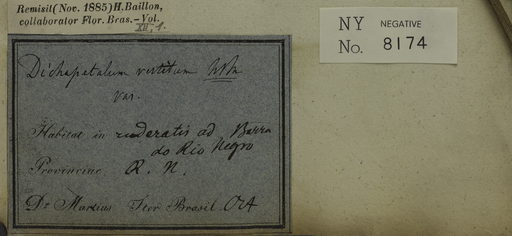 Remisit (Nov. 1885) H. Baillon,
collaborator Flor. Bras.-Vol.
XII, 1.
NY NEGATIVE
No. 8174
Dichapetalum
var.
Habitat in ruderatis ad Barra
do Rio Negro
Provinciae R. N.
Dr Martius Iter Brasil.